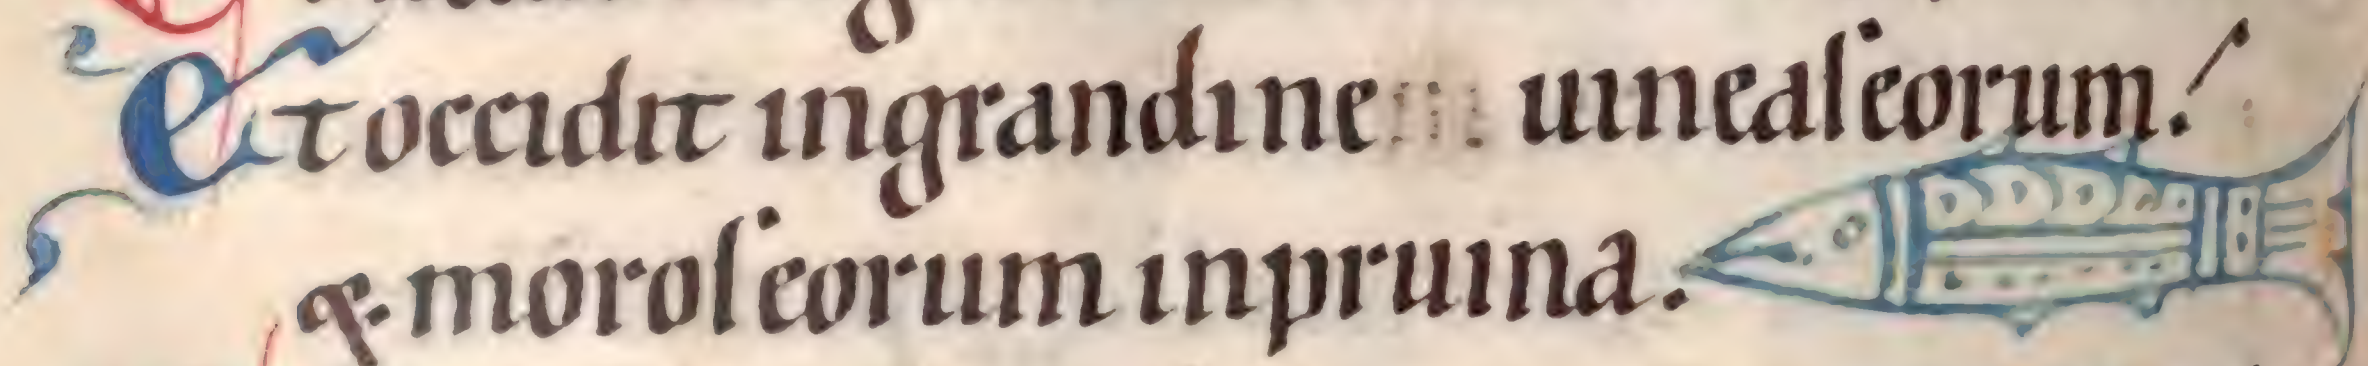 Et occidit in grandine uineaſ eorum.
⁊ moroſ eorum in pruina.